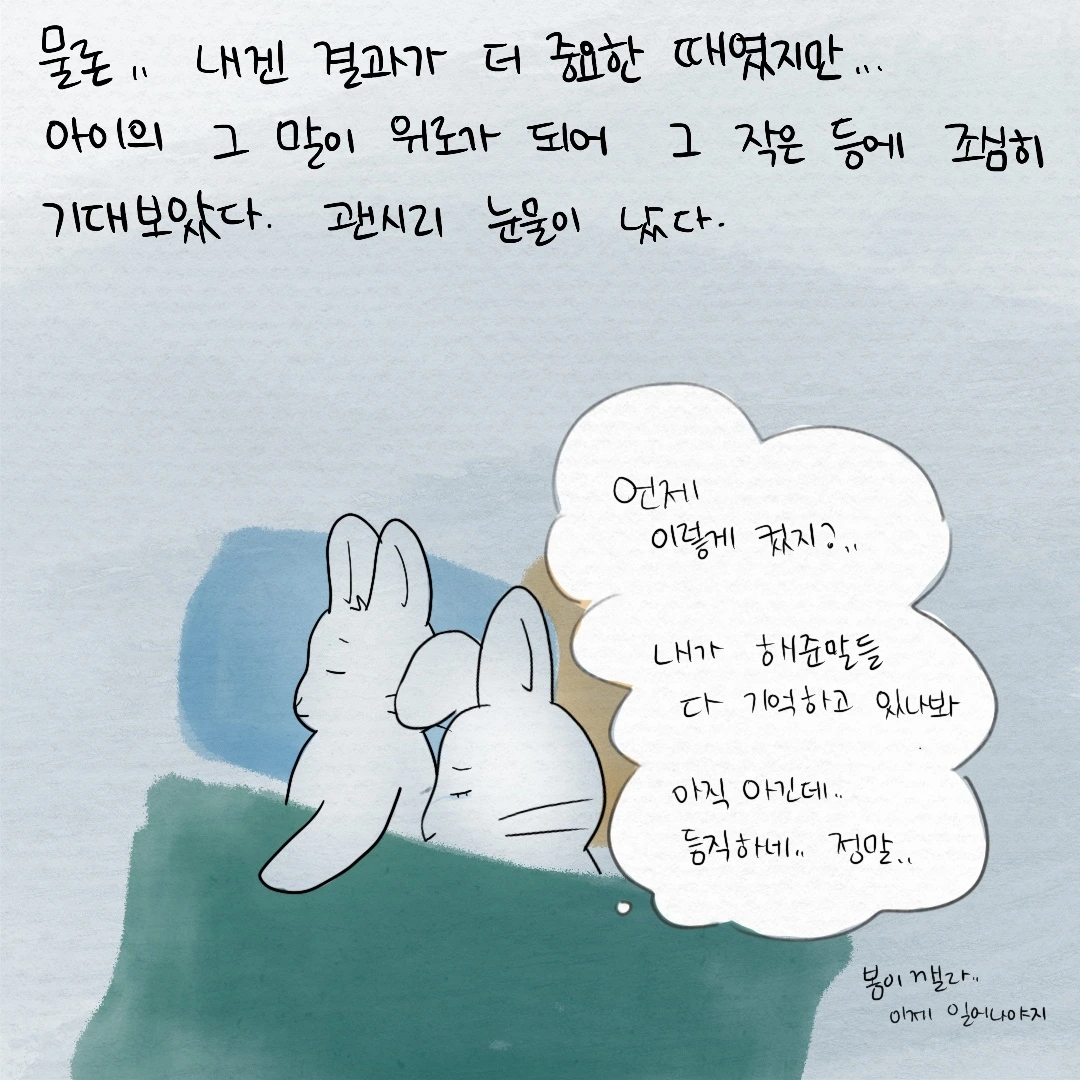 물론.. 내겐 결과가 더 중요한 때였지만...
아이의 그 말이 위로가 되어 그 작은 등에 조심히
기대보았다. 괜시리 눈물이 났다.
언제
이렇게 컸지?..
내가 해준말들
다 기억하고 있나봐
아직 아긴데..
듬직하네.. 정말..
봄이 깰라..
이제 일어나야지